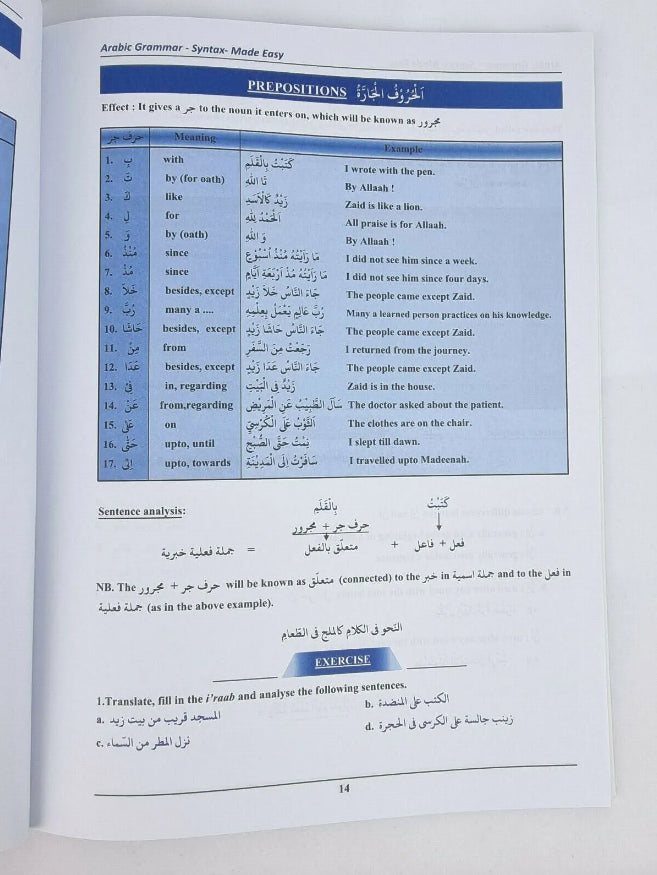 Arabic Grammar - Syntax- Made Easy
PREPOSITIONS اَلْحُرُوْفُ الْجَارَّةُ
Effect : It gives a جر to the noun it enters on, which will be known as مجرور
حرف جر Meaning Example
1. بِ with كَتَبْتُ بِالْقَلَمِ I wrote with the pen.
2. تَ by (for oath) تَا اللّٰهِ By Allaah !
3. كَ like زَيْدٌ كَالْاَسَدِ Zaid is like a lion.
4. لِ for اَلْحَمْدُ لِلّٰهِ All praise is for Allaah.
5. وَ by (oath) وَ اللّٰهِ By Allaah !
6. مُنْذُ since مَا رَاَيْتُهُ مُنْذُ اُسْبُوْعٍ I did not see him since a week.
7. مُذْ since مَا رَاَيْتُهُ مُذْ اَرْبَعَةِ اَيَّامٍ I did not see him since four days.
8. خَلَا besides, except جَاءَ النَّاسُ خَلَا زَيْدٍ The people came except Zaid.
9. رُبَّ many a .... رُبَّ عَالِمٍ يَعْمَلُ بِعِلْمِهِ Many a learned person practices on his knowledge.
10. حَاشَا besides, except جَاءَ النَّاسُ حَاشَا زَيْدٍ The people came except Zaid.
11. مِنْ from رَجَعْتُ مِنَ السَّفَرِ I returned from the journey.
12. عَدَا besides, except جَاءَ النَّاسُ عَدَا زَيْدٍ The people came except Zaid.
13. فِيْ in, regarding زَيْدٌ فِى الْبَيْتِ Zaid is in the house.
14. عَنْ from,regarding سَاَلَ الطَّبِيْبُ عَنِ الْمَرِيْضِ The doctor asked about the patient.
15. عَلٰى on اَلثَّوْبُ عَلَى الْكُرْسِيِّ The clothes are on the chair.
16. حَتّٰى upto, until نِمْتُ حَتَّى الصُّبْحِ I slept till dawn.
17. اِلٰى upto, towards سَافَرْتُ اِلَى الْمَدِيْنَةِ I travelled upto Madeenah.
Sentence analysis: بِالْقَلَمِ كَتَبْتُ
حرف جر + مجرور
جملة فعلية خبرية = متعلّق بالفعل + فعل + فاعل
NB. The حرف جر + مجرور will be known as متعلّق (connected) to the خبر in جملة اسمية and to the فعل in
جملة فعلية (as in the above example).
النحو فى الكلام كالملح فى الطّعام
EXERCISE
1.Translate, fill in the i'raab and analyse the following sentences.
a. المسجد قريب من بيت زيد b. الكتب على المنضدة
c. نزل المطر من السّماء d. زينب جالسة على الكرسى فى الحجرة
14